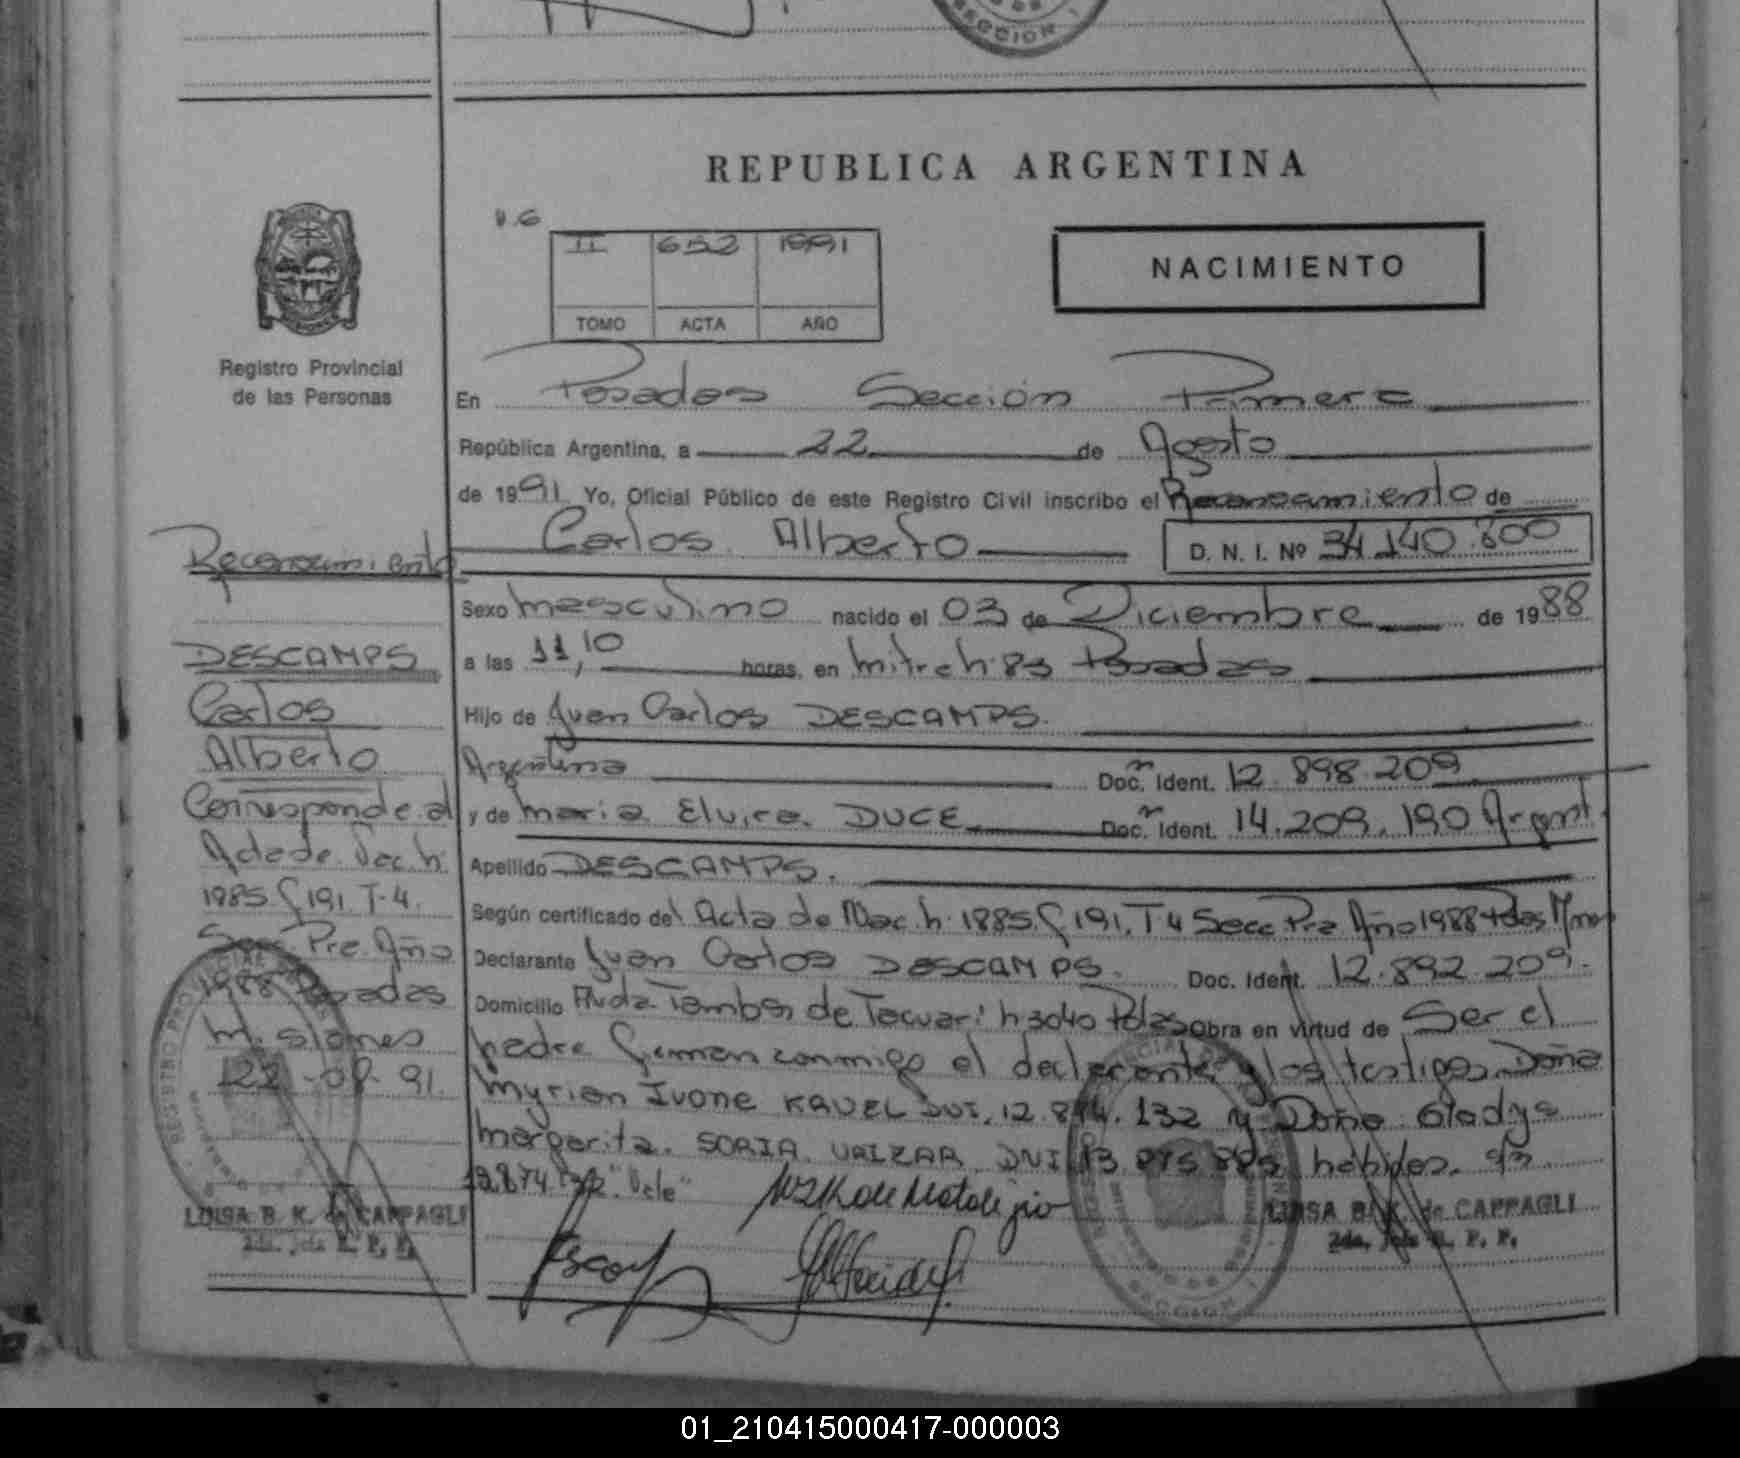 SECCION I
REPUBLICA ARGENTINA
V.G
II 652 1991
TOMO ACTA AÑO
NACIMIENTO
Registro Provincial
de las Personas
En Posadas Sección Primera
República Argentina, a 22 de Agosto
de 1991 Yo, Oficial Público de este Registro Civil inscribo el Reconocimiento de
Carlos Alberto D. N. I. Nº 34.140.800
Sexo masculino nacido el 03 de Diciembre de 1988
a las 11,10 horas, en mitre n: 83 Posadas
Hijo de Juan Carlos DESCAMPS.
Argentina Doc. Ident. 12.898.209
y de maria Elvira DUCE Doc. Ident. 14.209.190 Argent.
Apellido DESCAMPS.
Según certificado del Acta de Nac. n: 1985. f 191. T-4 Secc Pra Año 1988 Pdas Mnes
Declarante Juan Carlos DESCAMPS. Doc. Ident. 12.892.209.
Domicilio Avda Tambor de Tacuari n 3040 Pdas obra en virtud de Ser el
padre firman conmigo el declarante y los testigos Doña
Myrian Ivone KAUEL DNI. 12.874.132 y Doña Gladys
margarita SORIA DNI 13 hábiles.
12.874.132 "Vale"
LUISA B. K. de CAPPAGLI
Reconocimiento
DESCAMPS
Carlos
Alberto
Corresponde al
Acta de Nac n:
1985 f 191. T-4.
Secc. Pra. Año
1988 Posadas
Misiones
22-08-91.
REGISTRO PROVINCIAL DE LAS PERSONAS
LUISA B. K. de CAPPAGLI
01_210415000417-000003